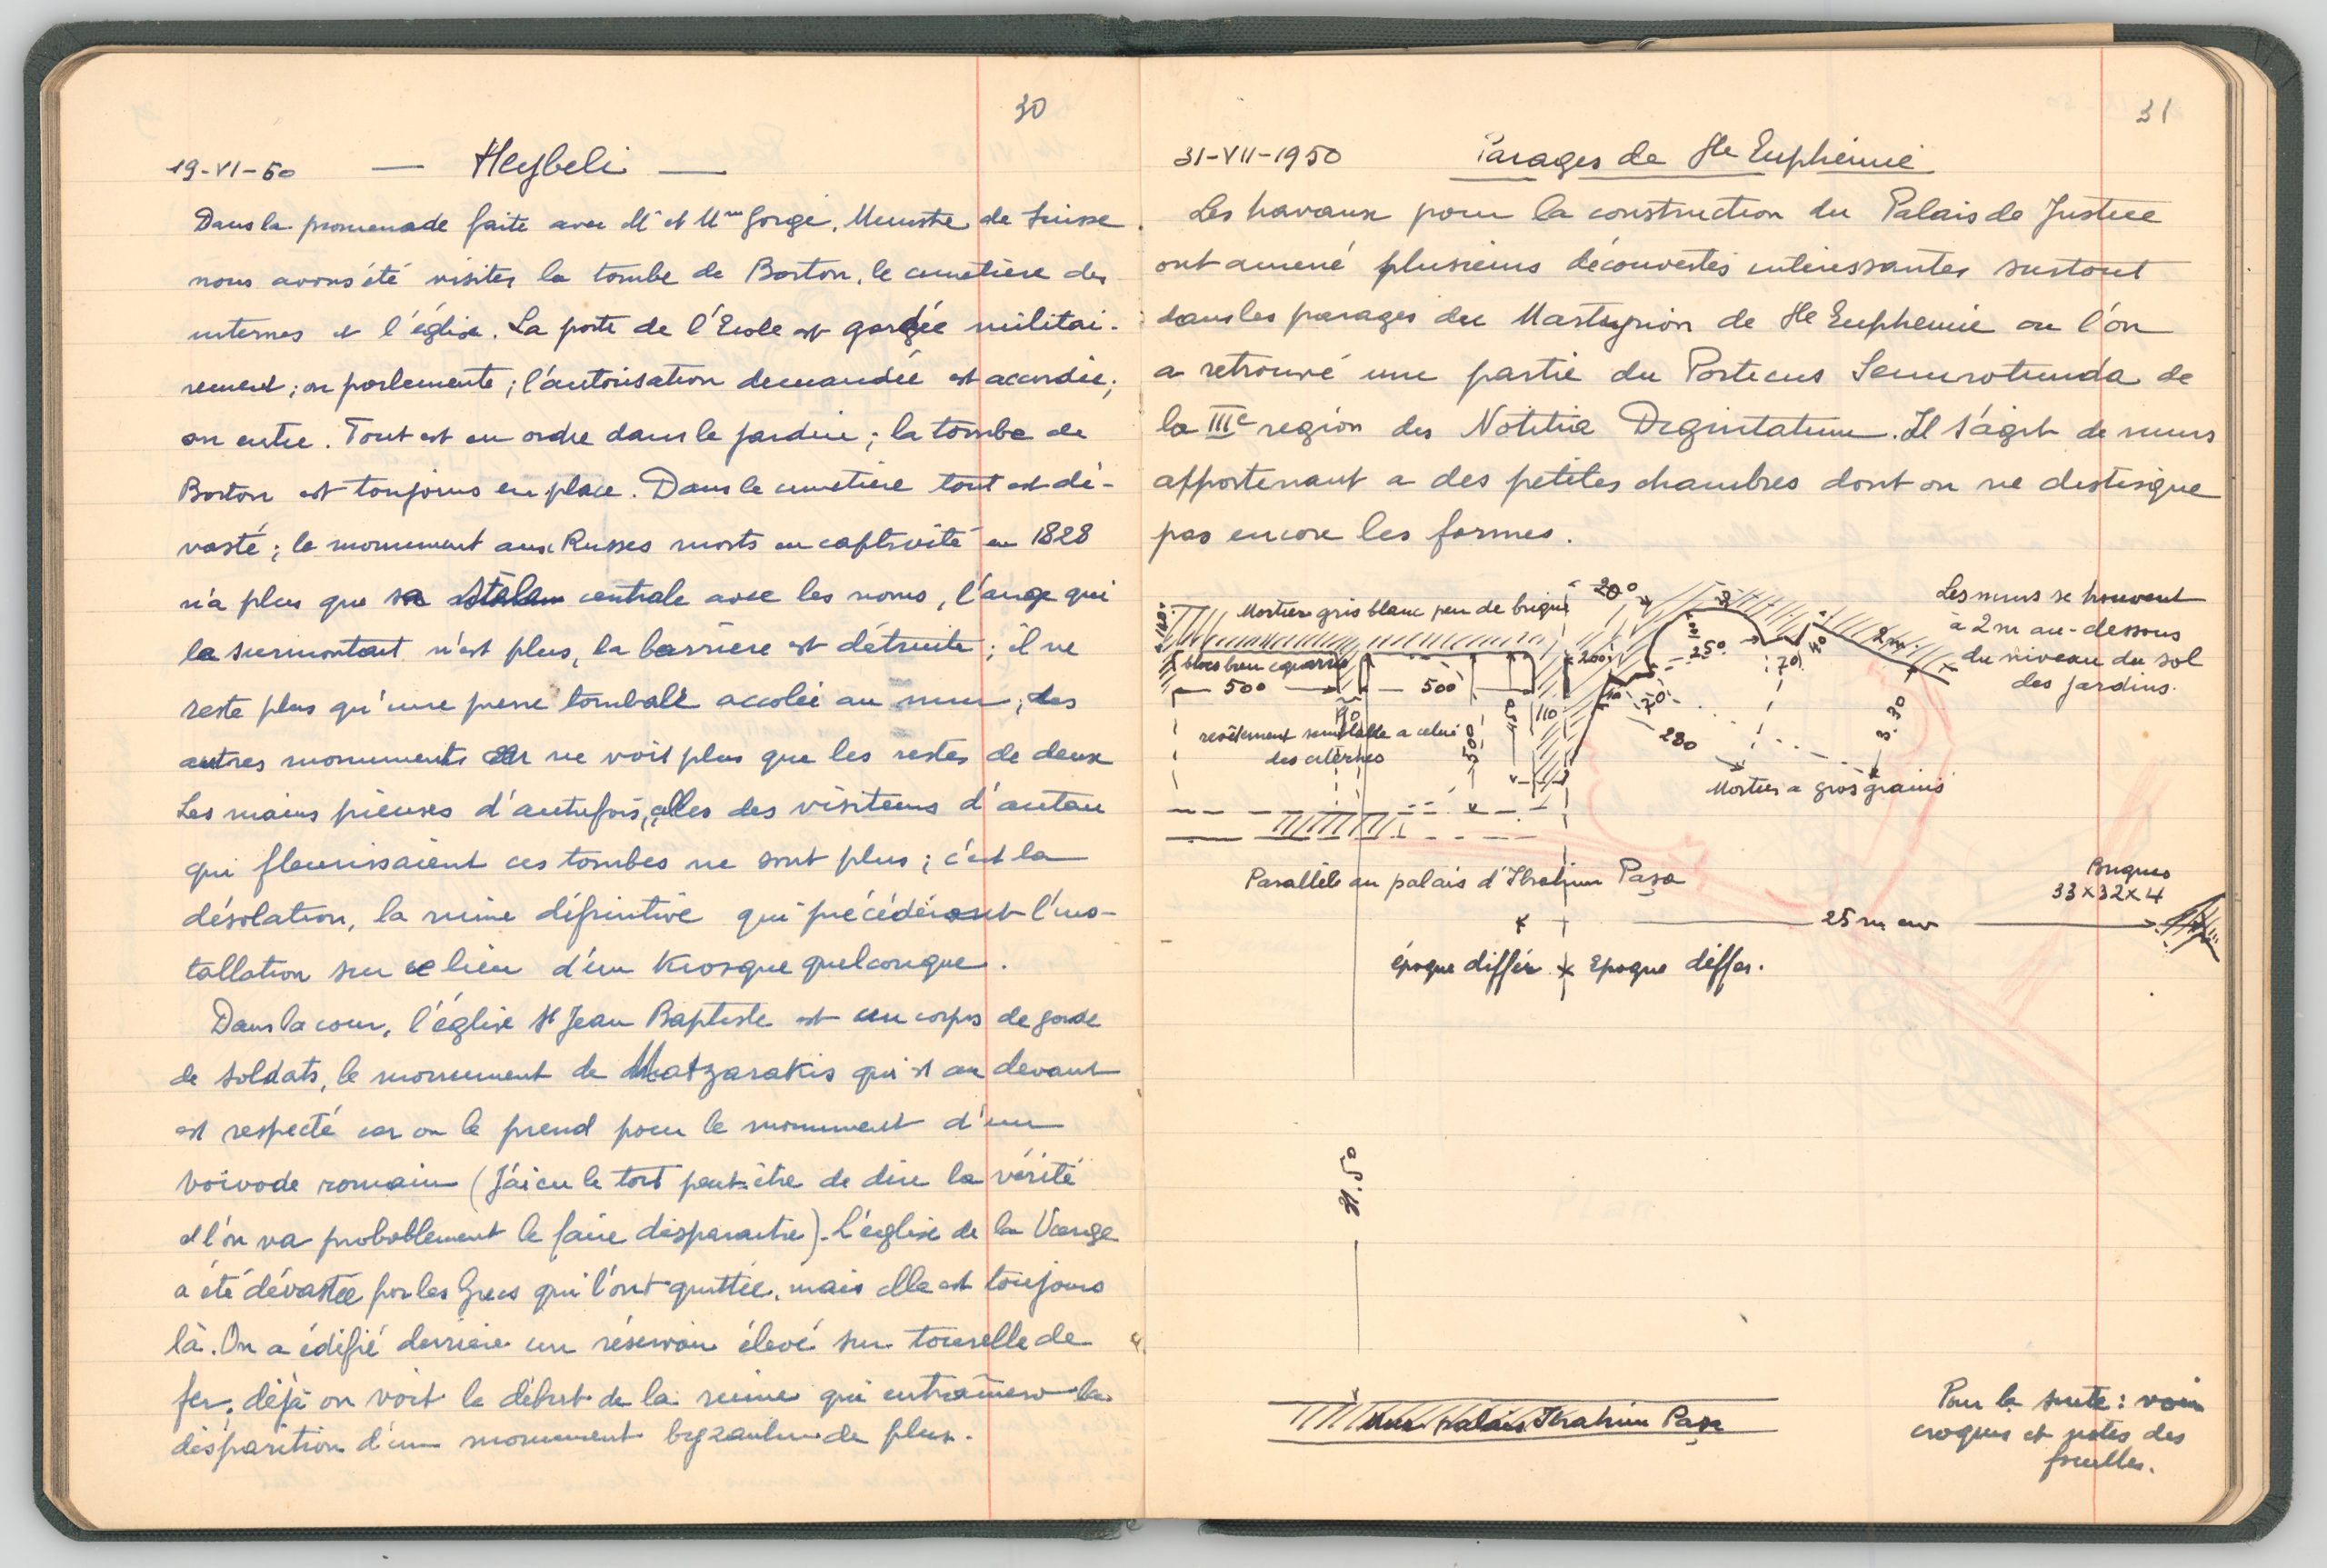 30
19-VI-50 — Heybeli —
Dans la promenade faite avec Mr et Mme Gorgé, Ministre de Suisse
nous avons été visiter la tombe de Barton, le cimetière des
internes et l'église. La porte de l'Ecole est gardée militai-
rement; on parlemente; l'autorisation demandée est accordée;
on entre. Tout est en ordre dans le jardin; la tombe de
Barton est toujours en place. Dans le cimetière tout est dé-
vasté; le monument aux Russes morts en captivité en 1828
n'a plus que sa centrale avec les noms, l'ange qui
la surmontait n'est plus, la barrière est détruite; il ne
reste plus qu'une pierre tombale accolée au mur; des
autres monuments on ne voit plus que les restes de deux
Les mains pieuses d'autrefois, celles des visiteurs d'antan
qui fleurissaient ces tombes ne sont plus; c'est la
désolation, la ruine définitive qui précédera l'ins-
tallation sur ce lieu d'un Kiosque quelconque.
Dans la cour, l'église St Jean Baptiste est un corps de garde
de soldats, le monument de Matzarakis qui est au devant
est respecté car on le prend pour le monument d'un
voivode romain (J'ai eu le tort peut-être de dire la vérité
et l'on va probablement le faire disparaitre). L'église de la Vierge
a été dévastée par les Grecs qui l'ont quittée, mais elle est toujours
là. On a édifié derrière un réservoir élevé sur tourelle de
fer, déjà on voit le début de la ruine qui entrainera la
disparition d'un monument byzantin de plus.
31
31-VII-1950 Parages de Ste Euphémie
Les travaux pour la construction du Palais de Justice
ont amené plusieurs découvertes intéressantes surtout
dans les parages du Martyrion de Ste Euphemie ou l'on
a retrouvé une partie du Porticus Semirotunda de
la IIIe région des Notitia Dignitatum. Il s'agit de murs
appartenant a des petites chambres dont on ne distingue
pas encore les formes.
Mortier gris blanc peu de brique
200
Les murs se trouvent
à 2m au-dessous
du niveau du sol
des jardins.
blocs bien equarris
500
500
200
250
70
40
2m.
110
70
280
3.30
500
revêtement semblable a celui
des citernes
Mortier a gros grains
Parallèle au palais d'Ibrahim Paşa
Briques
33x32x4
25 m env
époque différ x Epoque differ.
Mur Palais Ibrahim Paşa
Pour la suite: voir
croquis et notes des
fouilles.